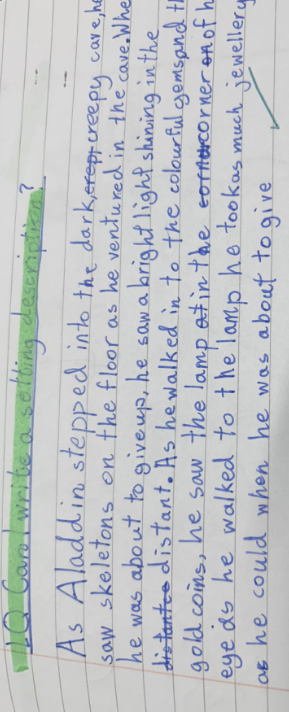 LQ Can I write a setting description?
As Aladdin stepped into the dark, creep creepy cave, he
saw skeletons on the floor as he ventured in the cave. Whe
he was about to give up, he saw a bright light shining in the
distantce distant. As he walked in to the colourful gems, and th
gold coins, he saw the lamp at in the corner corner on of h
eyeds he walked to the lamp he took as much jewellery
as he could when he was about to give